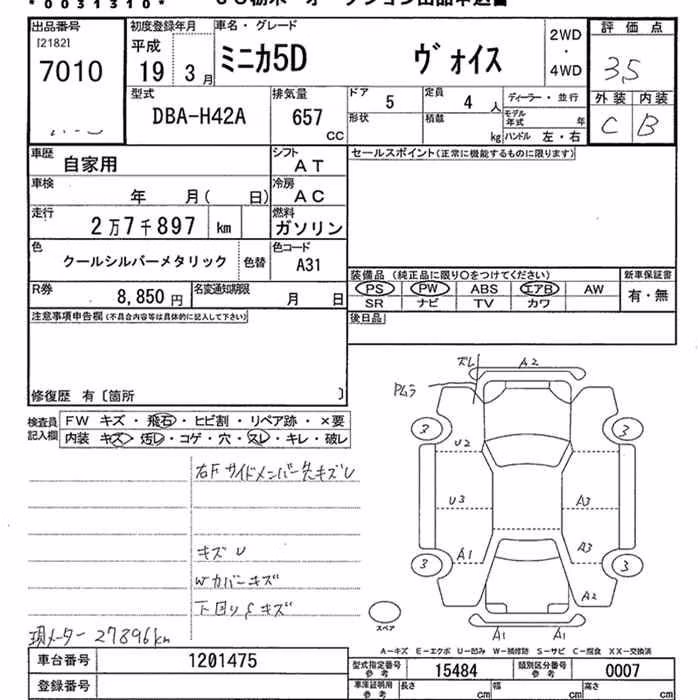 *0031310*
出品番号 初度登録年月 車名・グレード 評価点
[2182] 7010 平成 19 3月 ミニカ5D ヴォイス 2WD・4WD 3.5
外装 内装
C B
型式 排気量 ドア 5 定員 4人 ディーラー・並行
DBA-H42A 657 CC 形状 積載 kg モデル年式 年
ハンドル 左・右
車歴 自家用 シフト AT セールスポイント(正常に機能するものに限ります)
車検 年 月( 日) 冷房 AC
走行 2万7千897 km 燃料 ガソリン
色 クールシルバーメタリック 色替 色コード A31
装備品 (純正品に限り○をつけてください) 新車保証書
PS PW ABS エアB AW 有・無
SR ナビ TV カワ
R券 8,850円 名変通知期限 月 日
注意事項申告欄(不具合内容等は具体的に記入して下さい) 後日品
修復歴 有〔箇所 〕
検査員記入欄 FW キズ・飛石・ヒビ割・リペア跡・×要
内装 キズ・汚レ・コゲ・穴・スレ・キレ・破レ
ズレ A2
PMラ
3 3
U2
U3 A3
A1 A3
3 3
A2
A1 A1
スペア
右Fサイドメンバー先キズU
キズU
Wカバーキズ
下回りSキズ
現メーター 27896km
A-キズ E-エクボ U-凹み W-補修跡 S-サビ C-腐食 XX-交換済
車台番号 1201475 型式指定番号 参考 15484 類別区分番号 参考 0007
登録番号 車庫証明用 参考 長さ cm 幅 cm 高さ cm